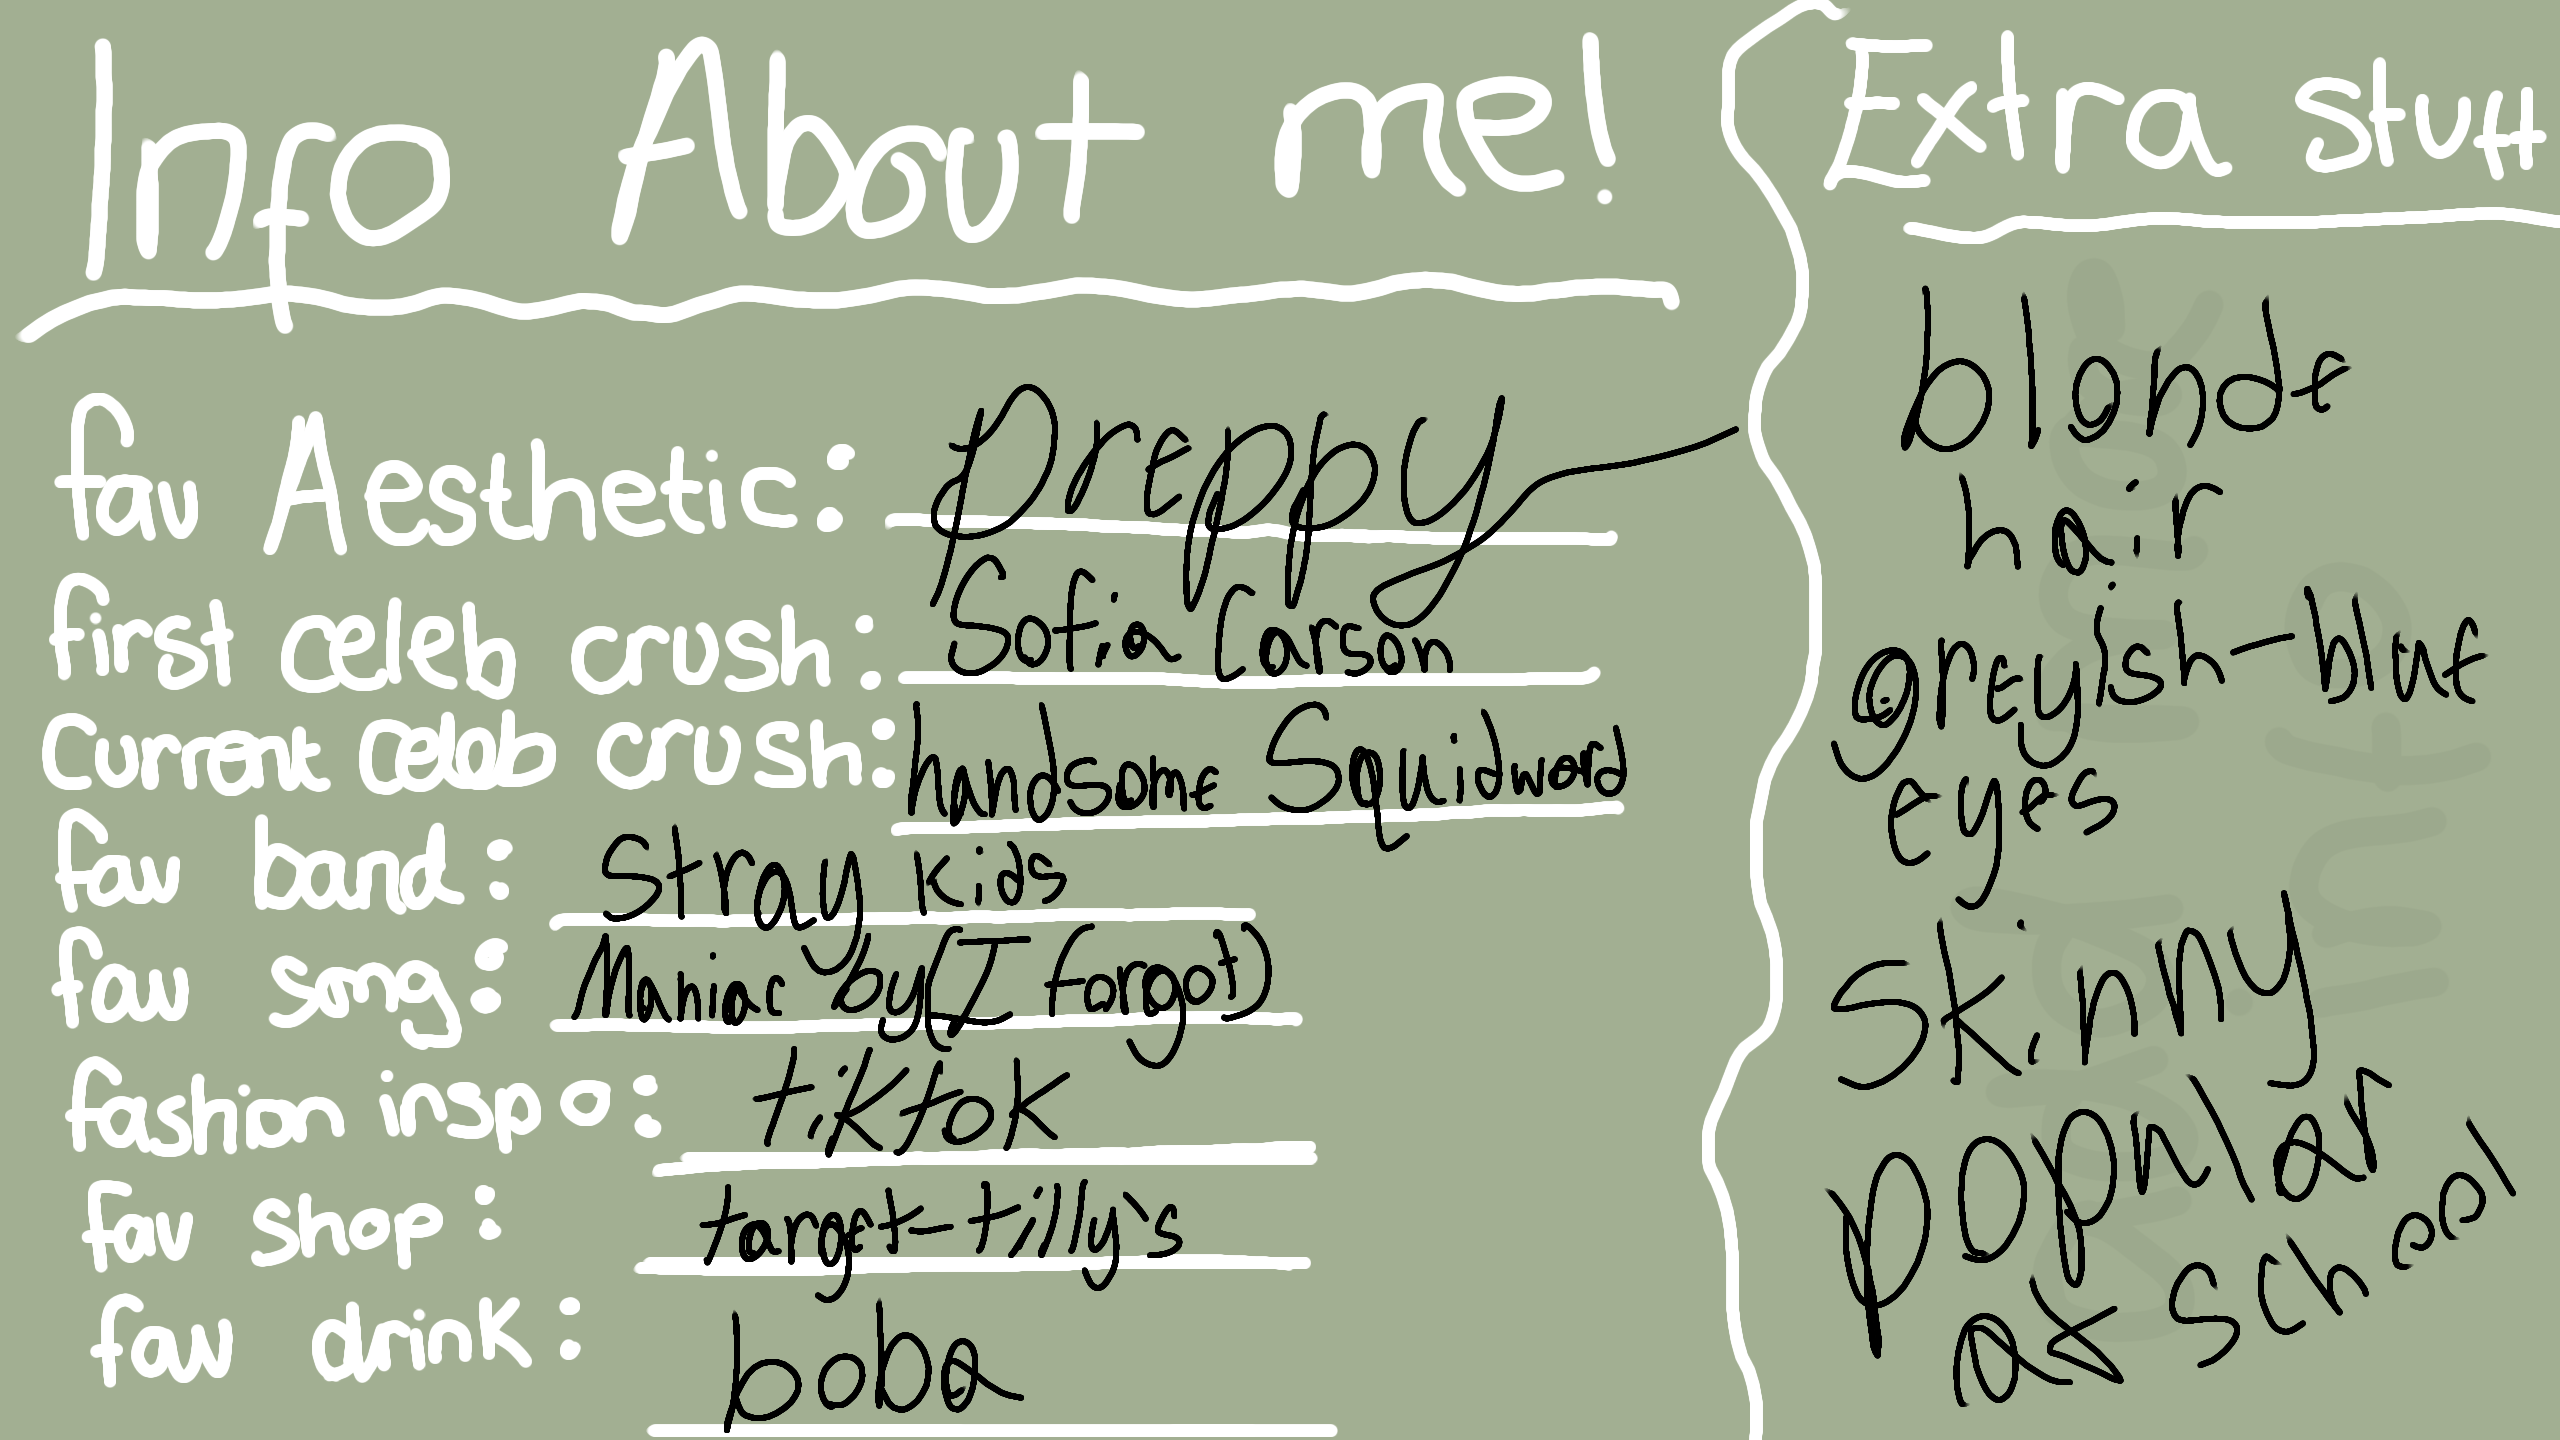 Info About me!
fav Aesthetic: preppy
first celeb crush: Sofia Carson
Current celeb crush: handsome Squidword
fav band: Stray kids
fav song: Maniac by (I forgot)
fashion inspo: tiktok
fav shop: target-tilly's
fav drink: boba
Extra stuff
blonde
hair
greyish-blue
eyes
skinny
popular
at school